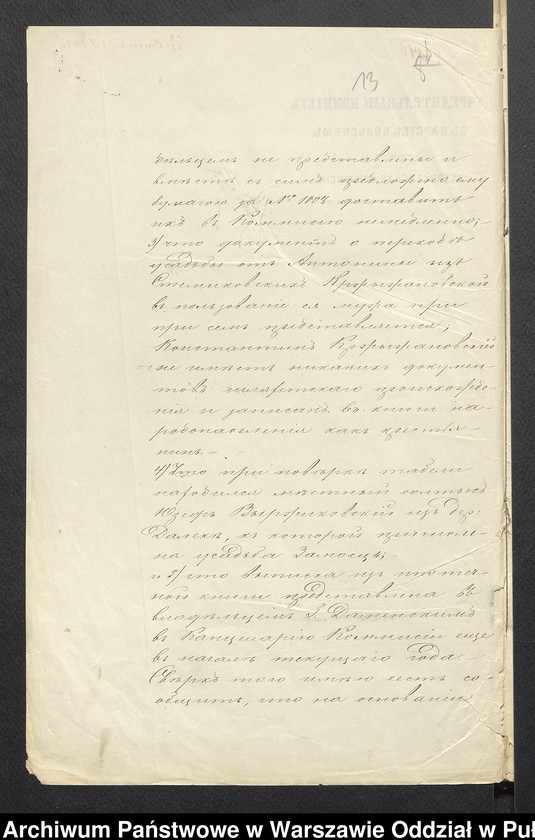 13
УЧРЕДИТЕЛЬНЫЙ КОМИТЕТЪ
ВЪ ЦАРСТВѢ ПОЛЬСКОМЪ.
дѣльцемъ не представлены и
вмѣстѣ съ симъ предложено ему
бумагою за № 1008 доставить
ихъ въ Коммисію немедленно;-
3/ что документъ о переходѣ
усадьбы отъ Антонины изъ
Кржижановской
въ пользованіе ея мужа при
при семъ представляется;
Константинъ Кржижановскій
не имѣетъ никакихъ докумен-
товъ шляхетскаго происхожде-
нія и записанъ въ книги на-
родонаселенія какъ крестья-
нинъ.-
4/ Что при повѣркѣ табели
находился мѣстный солтысъ
Юзефъ изъ дер.
къ которой причисле-
на усадьба Замосцъ;-
и 5/ что выписка изъ ипотеч-
ной книги представлена
владѣльцемъ
въ Канцелярію Коммисіи еще
въ началѣ текущаго года.
Сверхъ того имѣю честь со-
общить, что на основаніи
Archiwum Państwowe w Warszawie Oddział w Puł